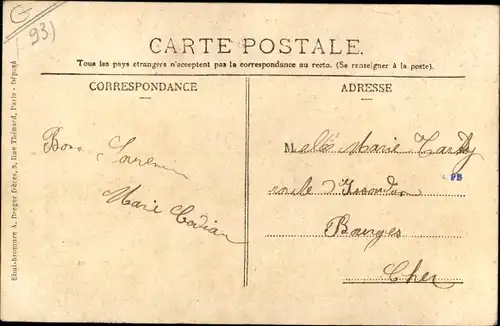 G
(93)
CARTE POSTALE.
Tous les pays étrangers n'acceptent pas la correspondance au recto. (Se renseigner à la poste).
CORRESPONDANCE
ADRESSE
Bon Souvenir
Marie
Melle Marie Tardy
PB
route d'Issoudun
Bourges
Cher
Simili-bromure A. Breger frères, 9, Rue Thénard, Paris - Déposé